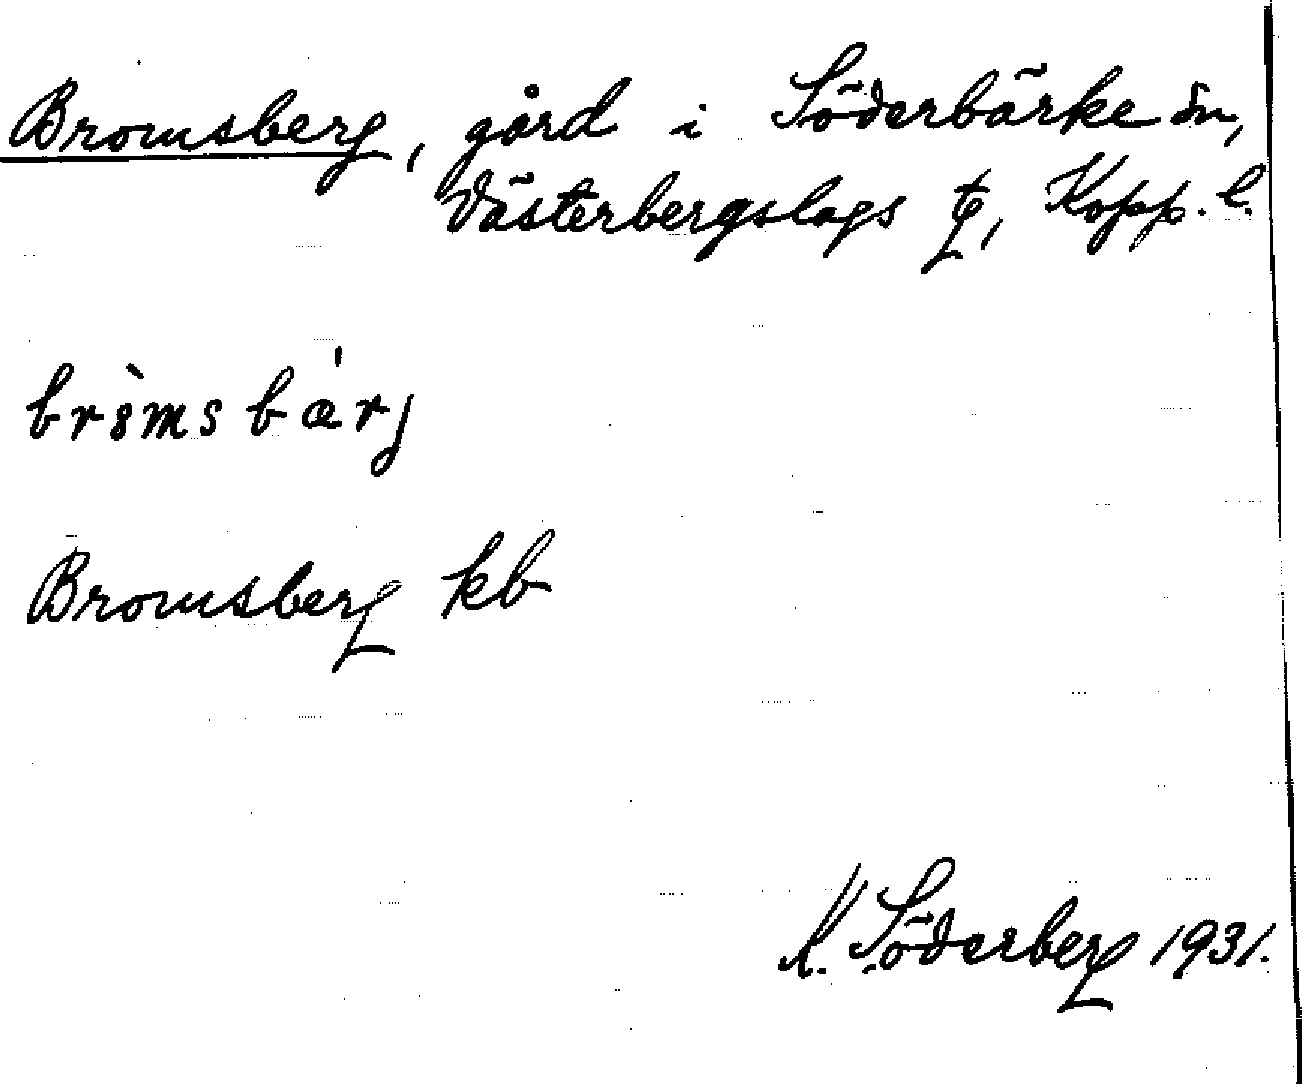 Bromsberg, gård i Söderbärke sn,
Västerbergslags t, Kopp. l.
Bromsberg kb
Söderberg 1931.